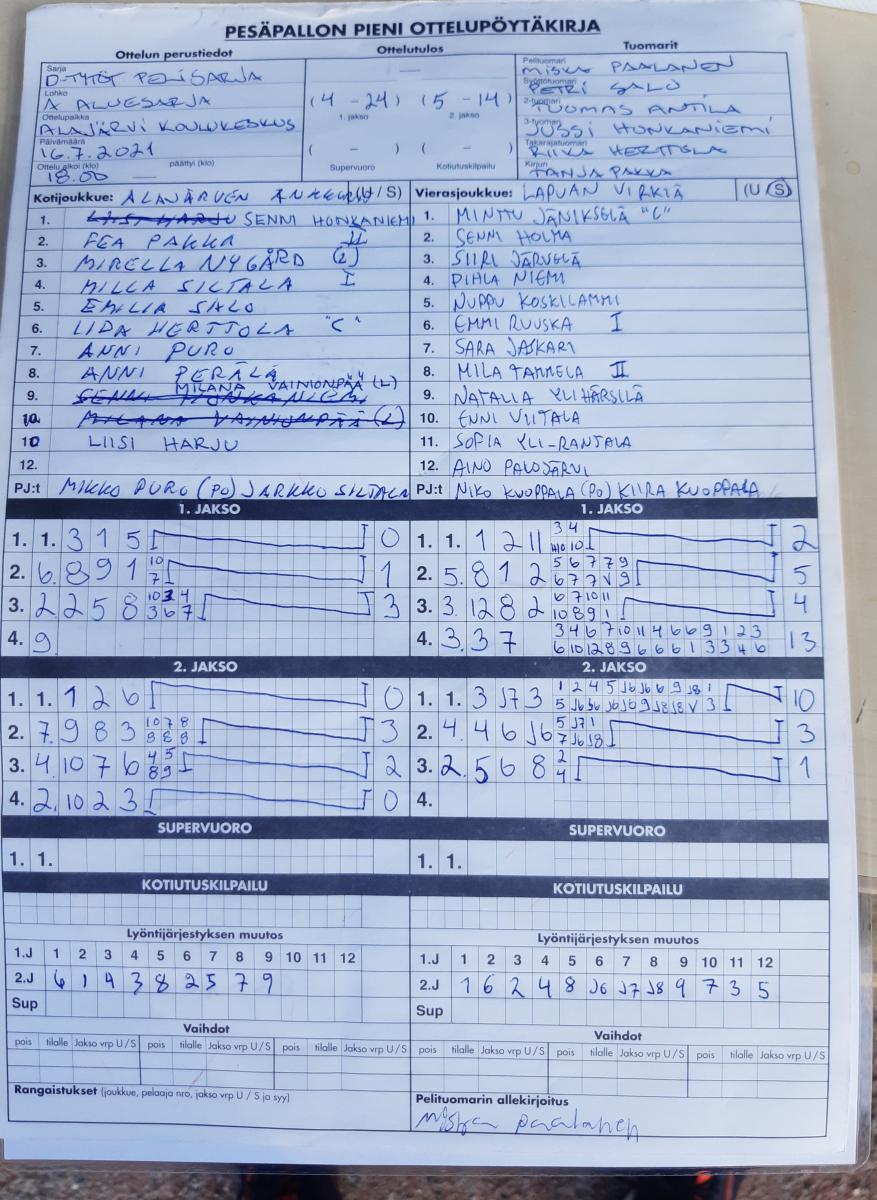 PESÄPALLON PIENI OTTELUPÖYTÄKIRJA
Ottelun perustiedot
Sarja
D-TYTÖT PELISARJA
Lohko
A ALUESARJA
Ottelupaikka
ALAJÄRVI KOULUKESKUS
Päivämäärä
16.7.2021
Ottelu alkoi (klo) päättyi (klo)
18.00 —
Ottelutulos
(4 - 24) (5 - 14)
1. jakso 2. jakso
( - ) ( - )
Supervuoro Kotiutuskilpailu
Tuomarit
Pelituomari
MISKA PAALANEN
Syöttötuomari
PETRI SALO
2-tuomari
TUOMAS ANTILA
3-tuomari
JUSSI HONKANIEMI
Takarajatuomari
RIIKA HERTTOLA
Kirjuri
TANJA PAKKA
Kotijoukkue: ALAJÄRVEN ANKKURIT / S)
1. SENNI HONKANIEMI
2. FEA PAKKA II
3. MIRELLA NYGÅRD (L)
4. MILLA SILTALA I
5. EMILIA SALO
6. LIDA HERTTOLA "C"
7. ANNI PURO
8. ANNI PERÄLÄ
9. MILANA VAINIONPÄÄ (L)
SENNI HONKANIEMI
10 MILANA VAINIONPÄÄ (L)
10 LIISI HARJU
12.
PJ:t MIKKO PURO (PO) JARKKO SILTALA
Vierasjoukkue: LAPUAN VIRKIÄ (U / S)
1. MINTTU JÄNIKSELÄ "C"
2. SENNI HOLMA
3. SIIRI JÄRVELÄ
4. PIHLA NIEMI
5. NUPPU KOSKILAMMI
6. EMMI RUUSKA I
7. SARA JASKARI
8. MILA TAMMELA II
9. NATALIA YLIHÄRSILÄ
10. ENNI VIITALA
11. SOFIA YLI-RANTALA
12. AINO PALOJÄRVI
PJ:t NIKO KUOPPALA (PO) KIIRA KUOPPALA
1. JAKSO
1. 1. 3 1 5 0
2. 6. 8 9 1 10 7 1
3. 2 2 5 8 3 6 7 3
4. 9
1. JAKSO
1. 1. 1 2 11 3 4 10 2
2. 5. 8 1 2 5 6 7 7 9 6 7 7 V 9 5
3. 3. 12 8 2 6 7 10 11 10 8 9 1 4
4. 3. 3 7 3 4 6 7 10 11 4 6 6 9 1 2 3
6 10 12 8 9 6 6 6 1 3 3 4 6 13
2. JAKSO
1. 1. 1 2 6 0
2. 7. 9 8 3 10 7 8 8 8 8 3
3. 4. 10 7 6 4 5 8 9 2
4. 2. 10 2 3 0
2. JAKSO
1. 1. 3 J7 3 1 2 4 5 J6 J6 6 9 J8 1
5 J6 J6 J6 J6 9 J8 J8 V 3 10
2. 4. 4 6 J6 5 J7 1 7 J6 J8 3
3. 2. 5 6 8 2 4 1
4.
SUPERVUORO
1. 1.
SUPERVUORO
1. 1.
KOTIUTUSKILPAILU
KOTIUTUSKILPAILU
Lyöntijärjestyksen muutos
1.J 1 2 3 4 5 6 7 8 9 10 11 12
2.J 6 1 4 3 8 2 5 7 9
Sup
Lyöntijärjestyksen muutos
1.J 1 2 3 4 5 6 7 8 9 10 11 12
2.J 1 6 2 4 8 J6 J7 J8 9 7 3 5
Sup
Vaihdot
pois tilalle Jakso vrp U / S pois tilalle Jakso vrp U / S pois tilalle Jakso vrp U / S
Vaihdot
pois tilalle Jakso vrp U / S pois tilalle Jakso vrp U / S pois tilalle Jakso vrp U / S
Rangaistukset (joukkue, pelaaja nro, jakso vrp U / S ja syy)
Pelituomarin allekirjoitus
Miska Paalanen